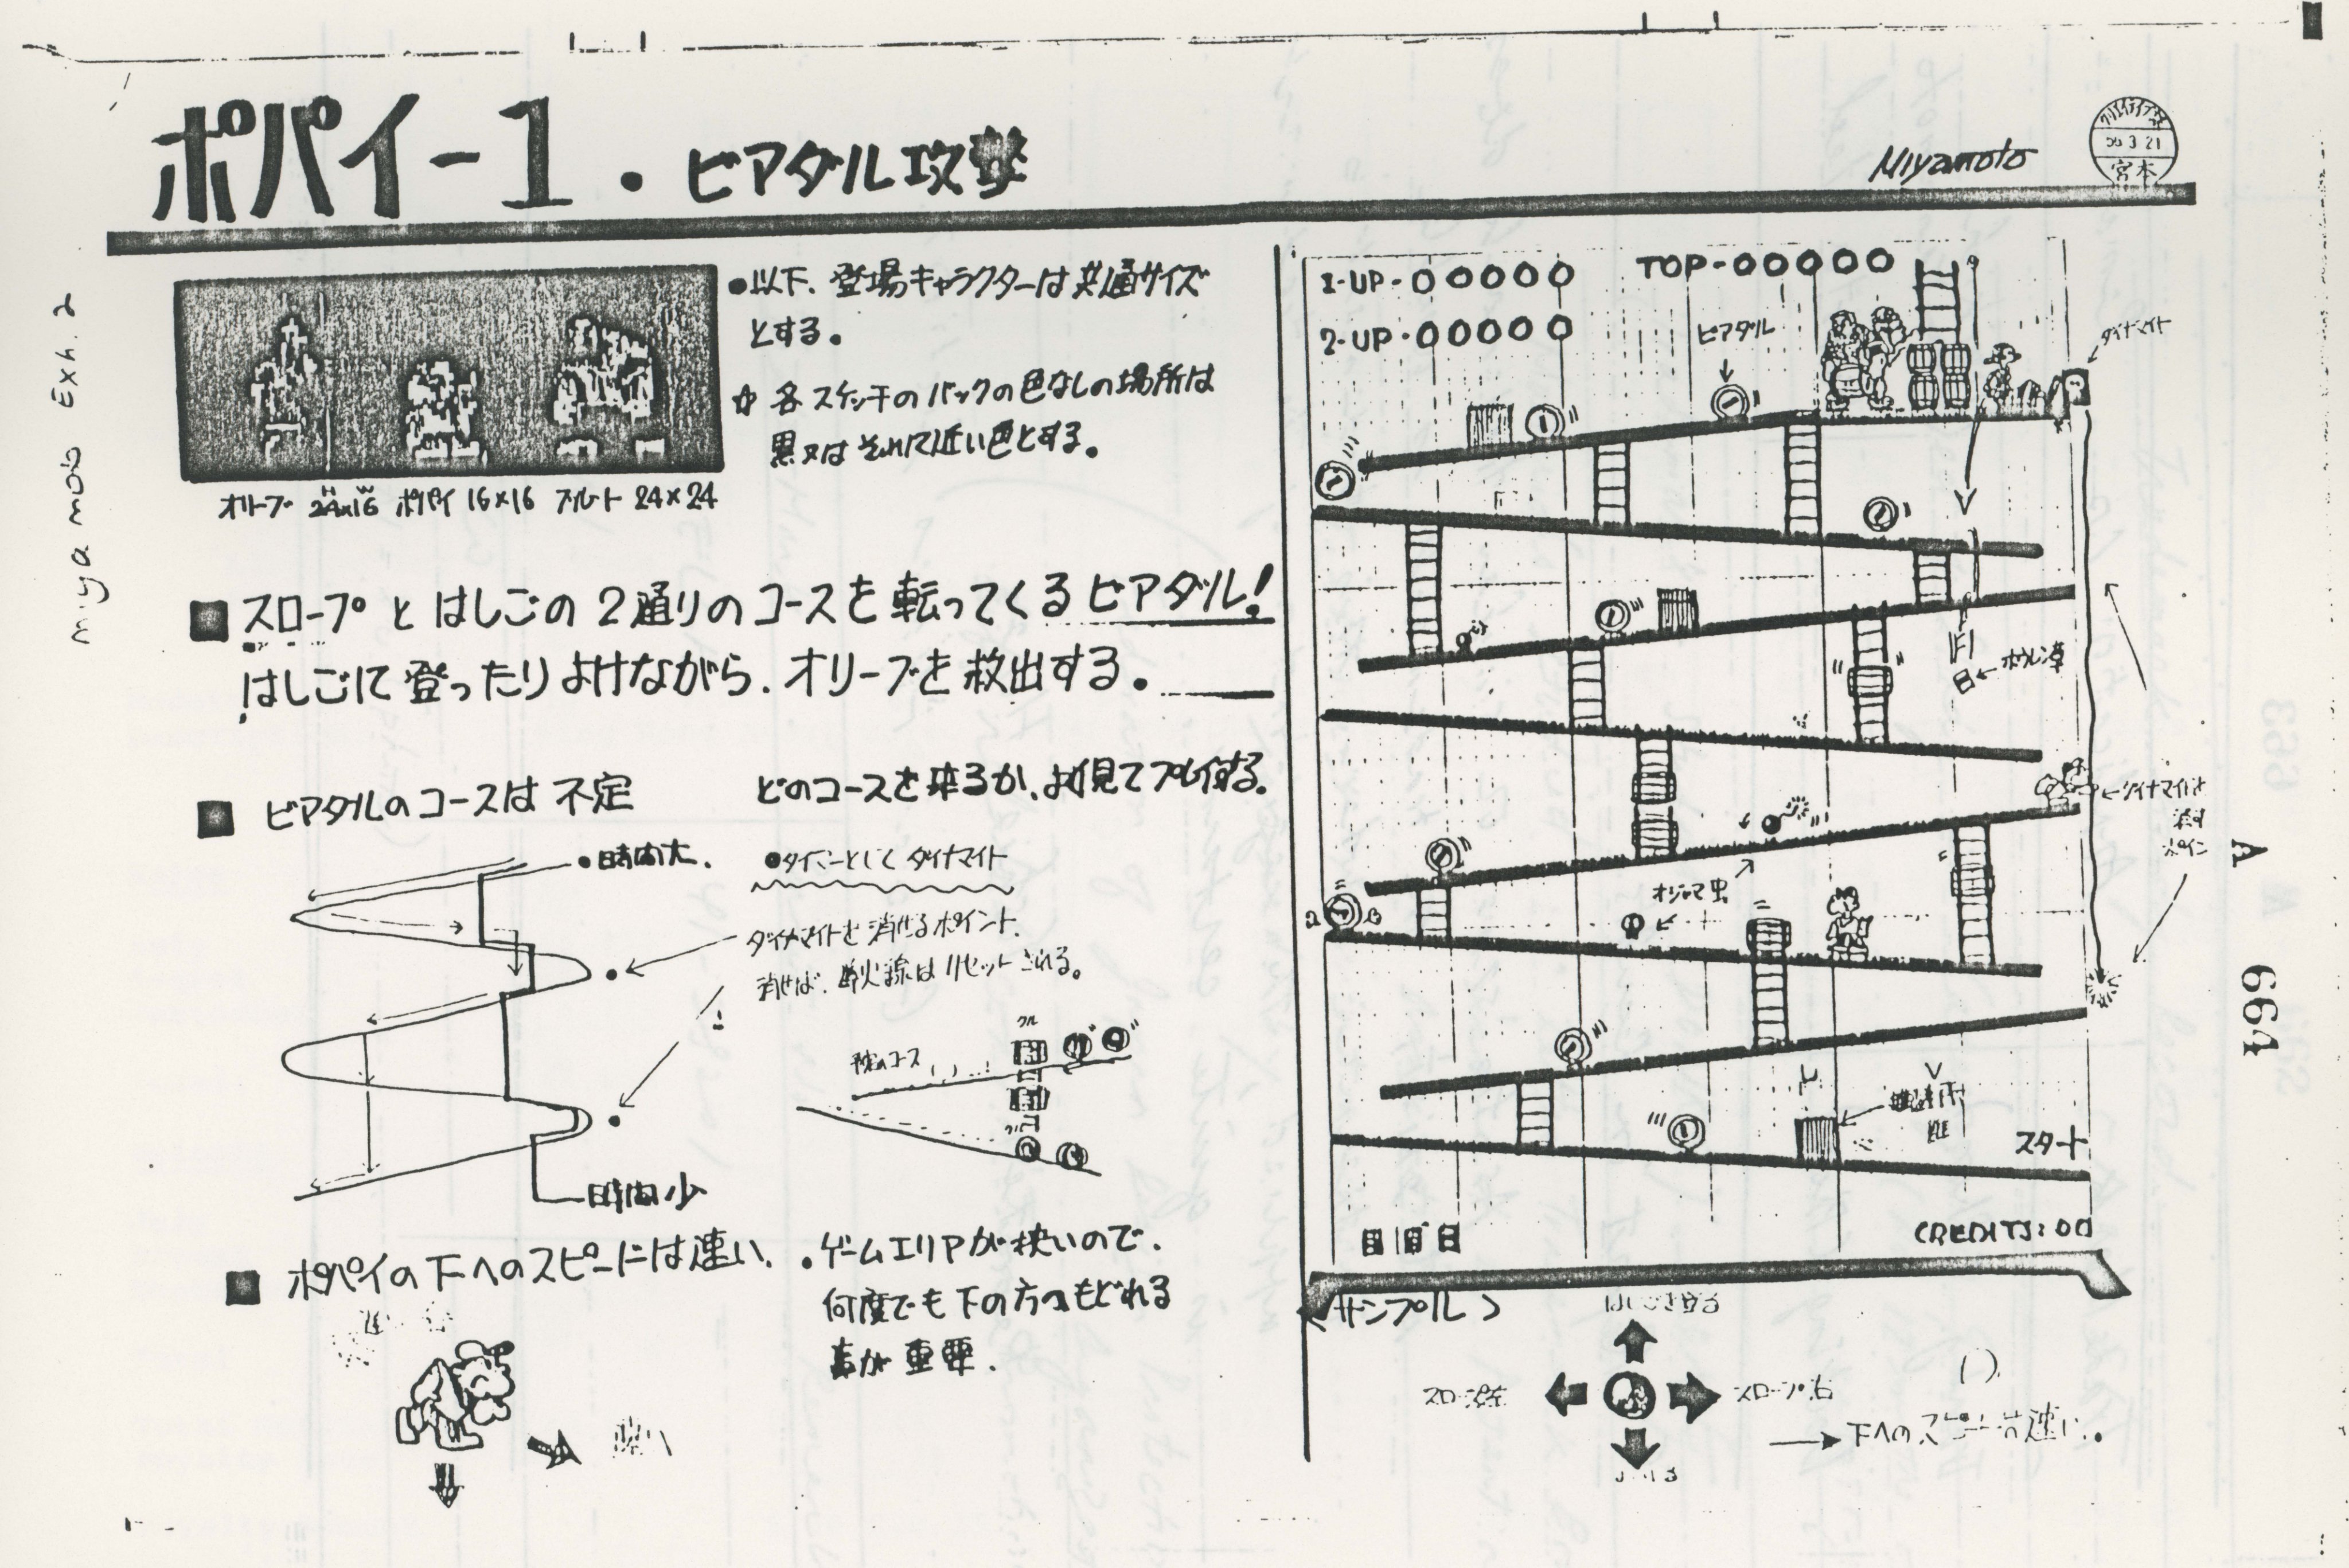 ポパイ-1・ビアダル攻撃
Miyamoto
3 21
宮本
miyamoto Exh. 2
•以下、登場キャラクターは共通サイズ
とする。
☆各スケッチのバックの色なしの場所は
黒又はそれに近い色とする。
オリーブ 24×16 ポパイ 16×16 ブルート 24×24
■スロープとはしごの2通りのコースを転ってくるビアダル!
はしごにて登ったりよけながら、オリーブを救出する。
■ビアダルのコースは不定 どのコースを来るか、よく見てプレイする。
•時間大。
•タイマーとして ダイナマイト
ダイナマイトを消せるポイント。
消せば、導火線はリセットされる。
コース
時間少
■ポパイの下へのスピードは速い。
•ゲームエリアが狭いので、
何度でも下の方へもどれる
事が重要。
1-UP-00000
TOP-00000
2-UP-00000
ビアダル
ダイナマイト
ホウレン草
ダイナマイトを
消す
ポイント
オジャマ虫
スタート
CREDITS:00
<サンプル>
はしごを登る
スロープ左
スロープ右
→下へのスピードは速い。
A 664